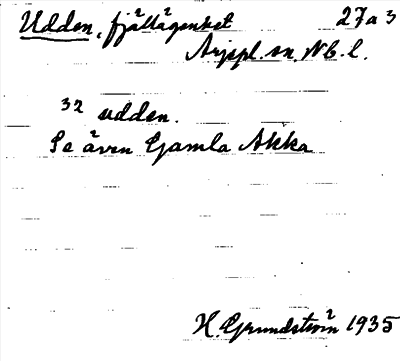 Udden, fjällägenhet 27a3
Arjepl. sn. Nb. l.
32 udden.
Se även Gamla Akka
H. Grundström 1935